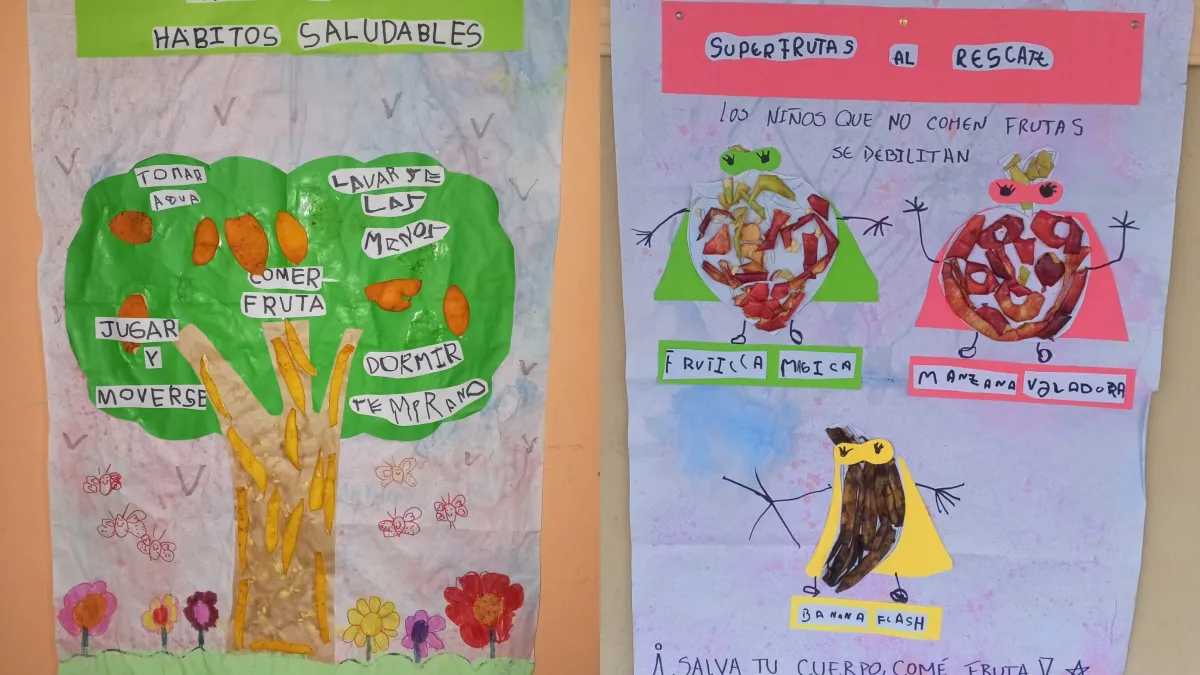 HÁBITOS SALUDABLES
TOMAR
AGUA
LAVARSE
LAS
MANOS
COMER
FRUTA
JUGAR
Y
MOVERSE
DORMIR
TEMPRANO
SUPERFRUTAS AL RESCATE
LOS NIÑOS QUE NO COMEN FRUTAS
SE DEBILITAN
FRUTILLA MAGICA
MANZANA VOLADORA
BANANA FLASH
¡SALVA TU CUERPO, COMÉ FRUTA!